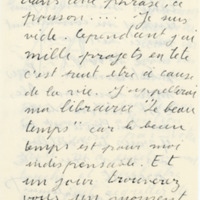 dans une phrase, a
pousson.... Je suis
vide. Cependant j'ai
mille projets en tête
c'est peut être à cause
de la vie. J'appellerai
ma librairie "le beau
temps" car le beau
temps est pour moi
indispensable. Et
un jour trouverez
vous un moment